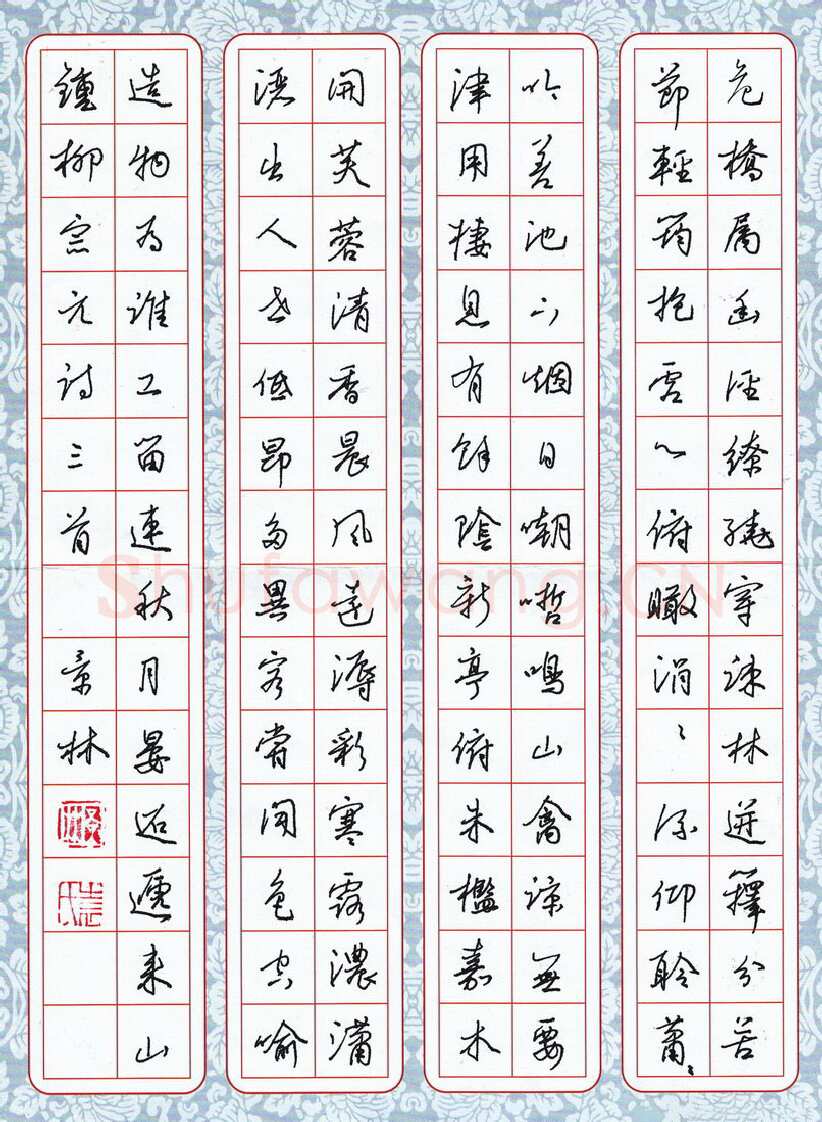 危橋属幽徑繚繞穿疎林迸籜分苦
節輕筠抱虚心俯瞰涓〻流仰聆蕭〻
吟差池下烟日嘲哳鳴山禽諒無要
津用棲息有餘陰新亭俯朱檻嘉木
開芙蓉清香晨風遠溽彩寒露濃瀟
洒出人世低昂多異容嘗聞色空喻
造物為誰工留連秋月晏迢遞來山
鍾柳宗元詩三首 景林
Shufawang.CN